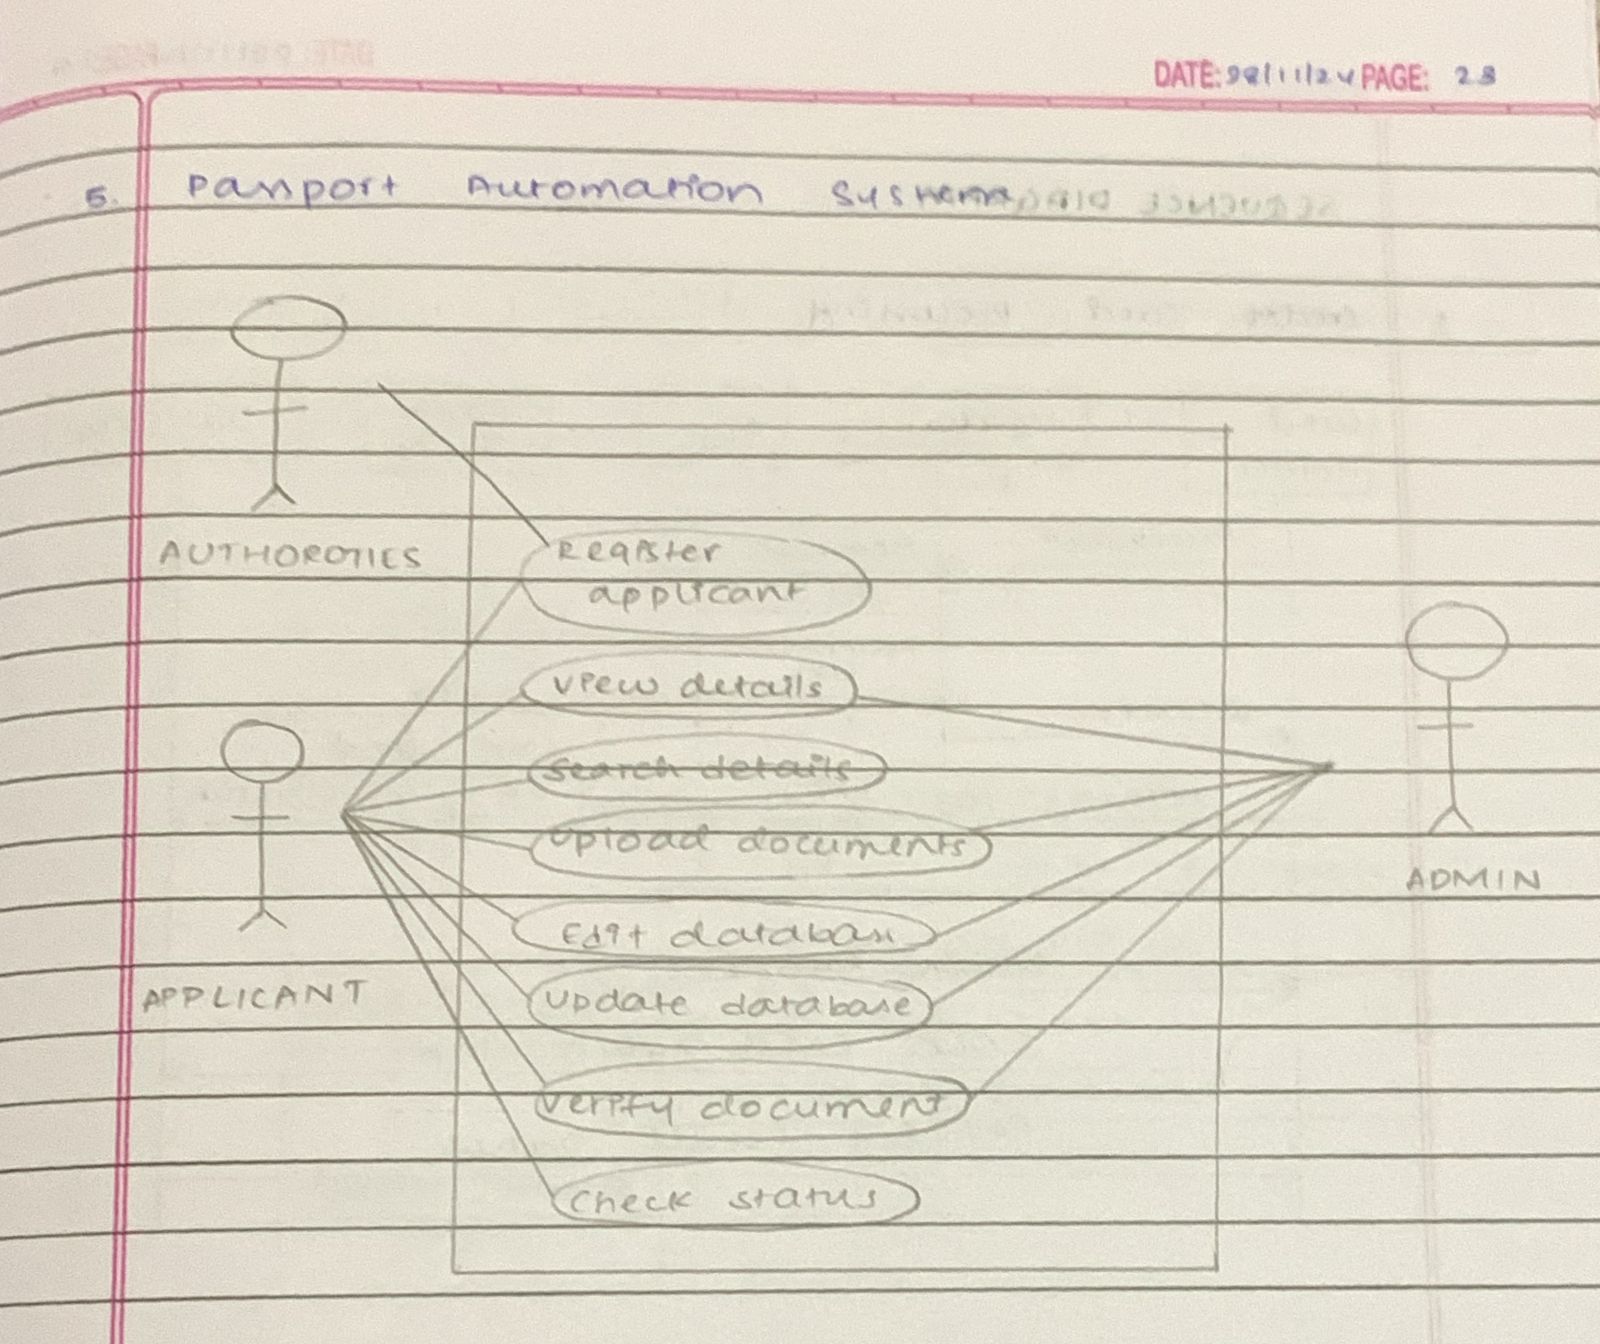 DATE: 28/11/24 PAGE: 23
5. Passport Automation System
AUTHOROTIES
Register
applicant
View details
Search details
Upload documents
ADMIN
Edit database
APPLICANT
Update database
Verify document
Check status